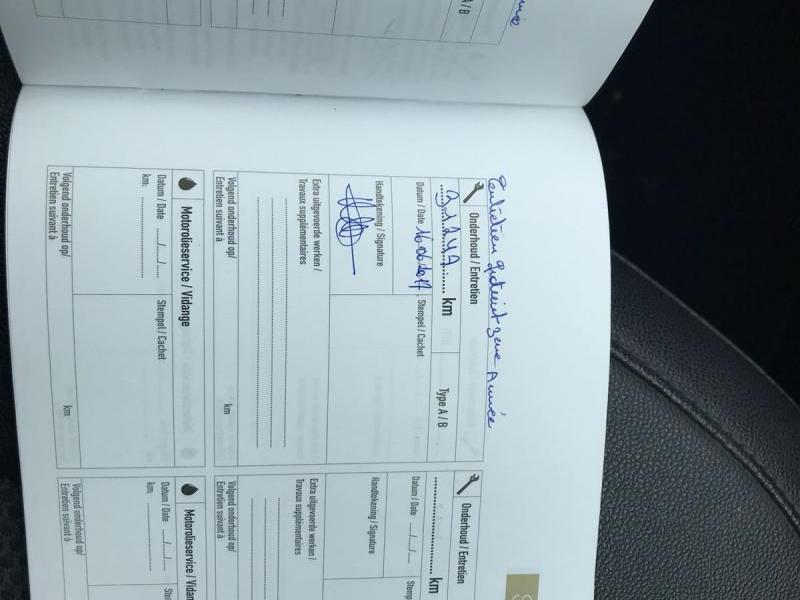 A / B
Entretien
3eme Année
Onderhoud / Entretien
km
Type A / B
Datum / Date
Stempel / Cachet
Handtekening / Signature
Extra uitgevoerde werken /
Travaux supplémentaires
Volgend onderhoud op/
Entretien suivant à
km
Motorolieservice / Vidange
Datum / Date ...../...../.....
km:
Stempel / Cachet
Volgend onderhoud op/
Entretien suivant à
km
Onderhoud / Entretien
km
Datum / Date ...../...../.....
Stemp
Handtekening / Signature
Extra uitgevoerde werken /
Travaux supplémentaires
Volgend onderhoud op/
Entretien suivant à
Motorolieservice / Vidan
Datum / Date ...../...../.....
km:
Ste
Volgend onderhoud op/
Entretien suivant à